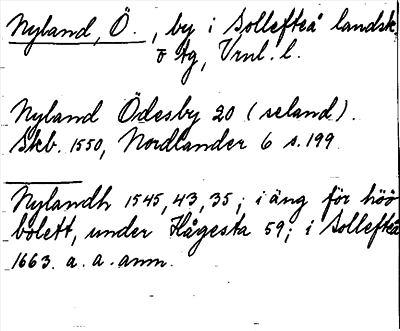 Nyland, Ö., by i Sollefteå landsk.
o tg, Vrnl. l.
Nyland Ödesby 20 (seland).
Skb. 1550, Nordlander 6 s. 199
Nylandh 1545, 43, 35; i äng för höö
bolett, under Hågesta 59; i Sollefteå
1663. a. a. anm.